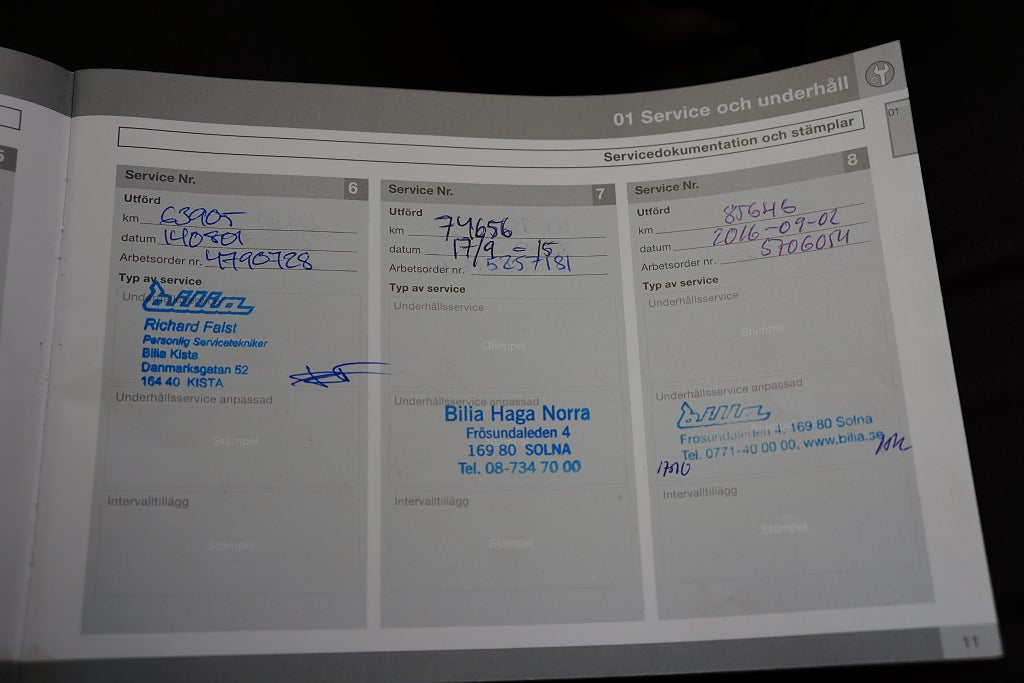 01 Service och underhåll
01
Servicedokumentation och stämplar
5
Service Nr. 6
Utförd
km 63905
datum 140801
Arbetsorder nr. 4790728
Typ av service
Underhållsservice
bilia
Richard Faist
Personlig Servicetekniker
Bilia Kista
Danmarksgatan 52
164 40 KISTA
Underhållsservice anpassad
Stämpel
Intervalltillägg
Stämpel
Service Nr. 7
Utförd
km 74656
datum 17/9 - 15
Arbetsorder nr. 5257181
Typ av service
Underhållsservice
Stämpel
Underhållsservice anpassad
Bilia Haga Norra
Frösundaleden 4
169 80 SOLNA
Tel. 08-734 70 00
Intervalltillägg
Stämpel
Service Nr. 8
Utförd
km 85646
datum 2016-09-02
Arbetsorder nr. 5706054
Typ av service
Underhållsservice
Stämpel
Underhållsservice anpassad
bilia
Frösundaleden 4, 169 80 Solna
Tel. 0771-40 00 00, www.bilia.se
Intervalltillägg
Stämpel
11